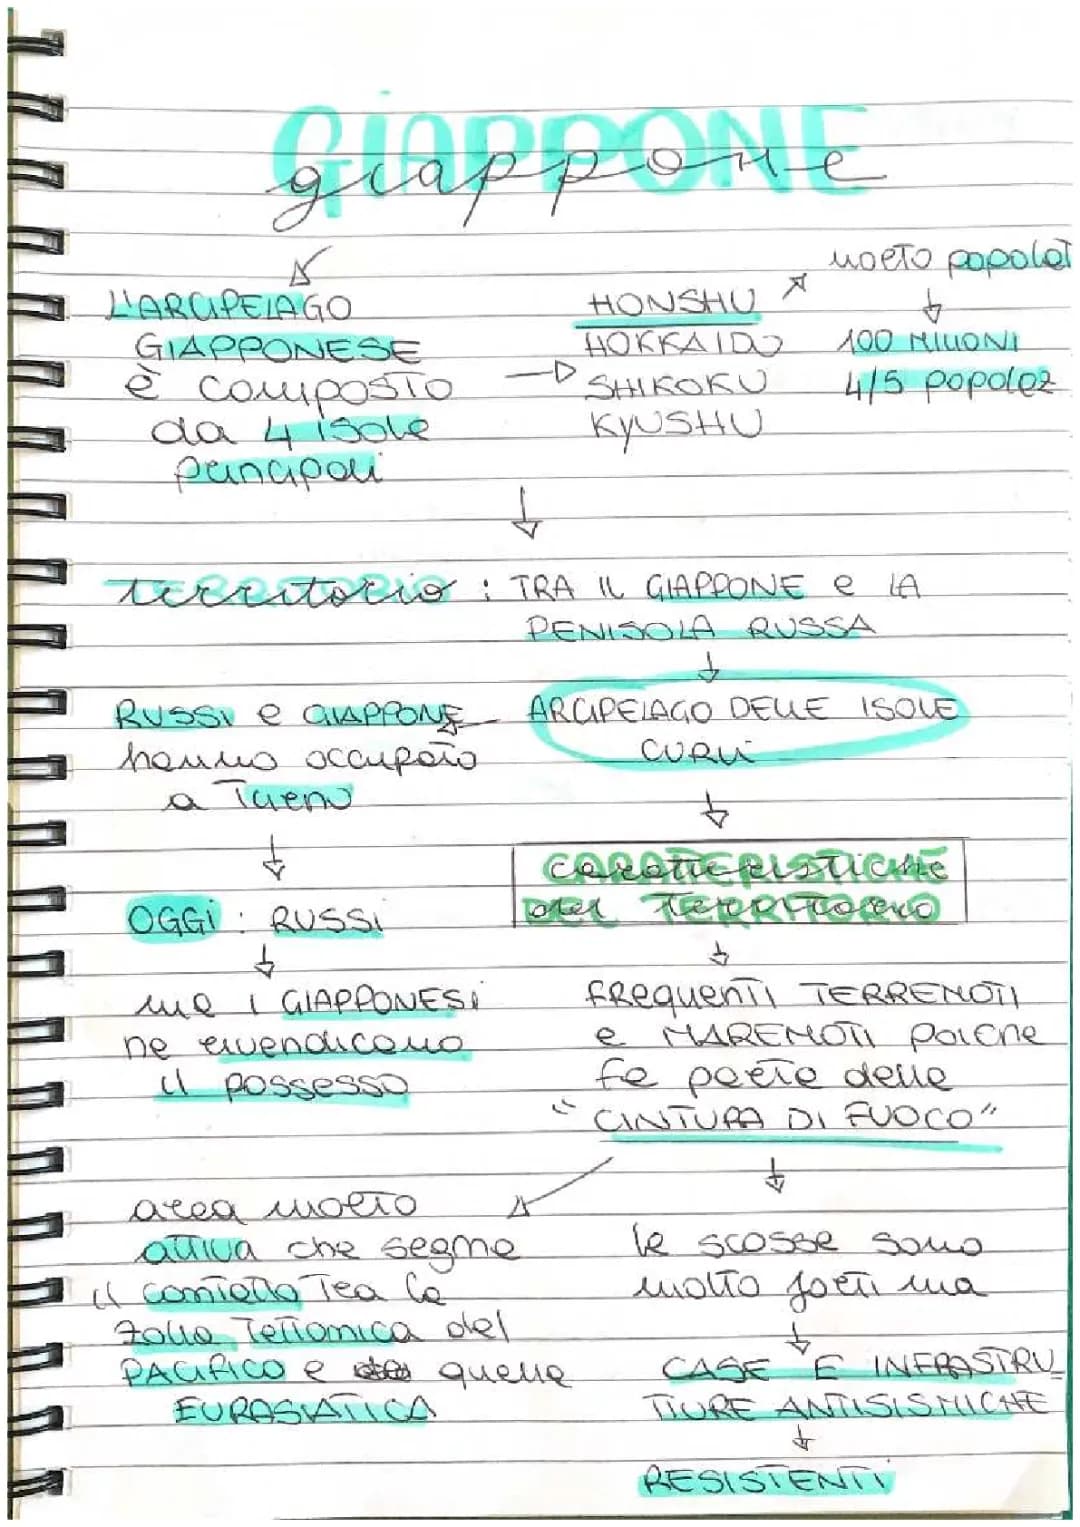 GIAPPONE
giappone
L'ARCIPELAGO
GIAPPONESE
è composto
da 4 isole
principali
HONSHU
HOKKAIDO
SHIKOKU
KYUSHU
molto popolat
100 MILIONI
4/5 popolaz
TERRITORIO
territorio : TRA IL GIAPPONE e LA
PENISOLA RUSSA
ARCIPELAGO DELLE ISOLE
CURILI
RUSSI e GIAPPONE
hanno occupato
a Turno
OGGI : RUSSI
ma i GIAPPONESI
ne rivendicano
il possesso
CARATTERISTICHE
caratteristiche
DEL TERRITORIO
del territorio
FREQUENTI TERREMOTI
e MAREMOTI poiché
fa parte della
"CINTURA DI FUOCO"
area molto
attiva che segna
il contatto Tra la
zolla Tettonica del
PACIFICO e quella
EURASIATICA
le scosse sono
molto forti ma
CASE E INFRASTRU_
TTURE ANTISISMICHE
RESISTENTI